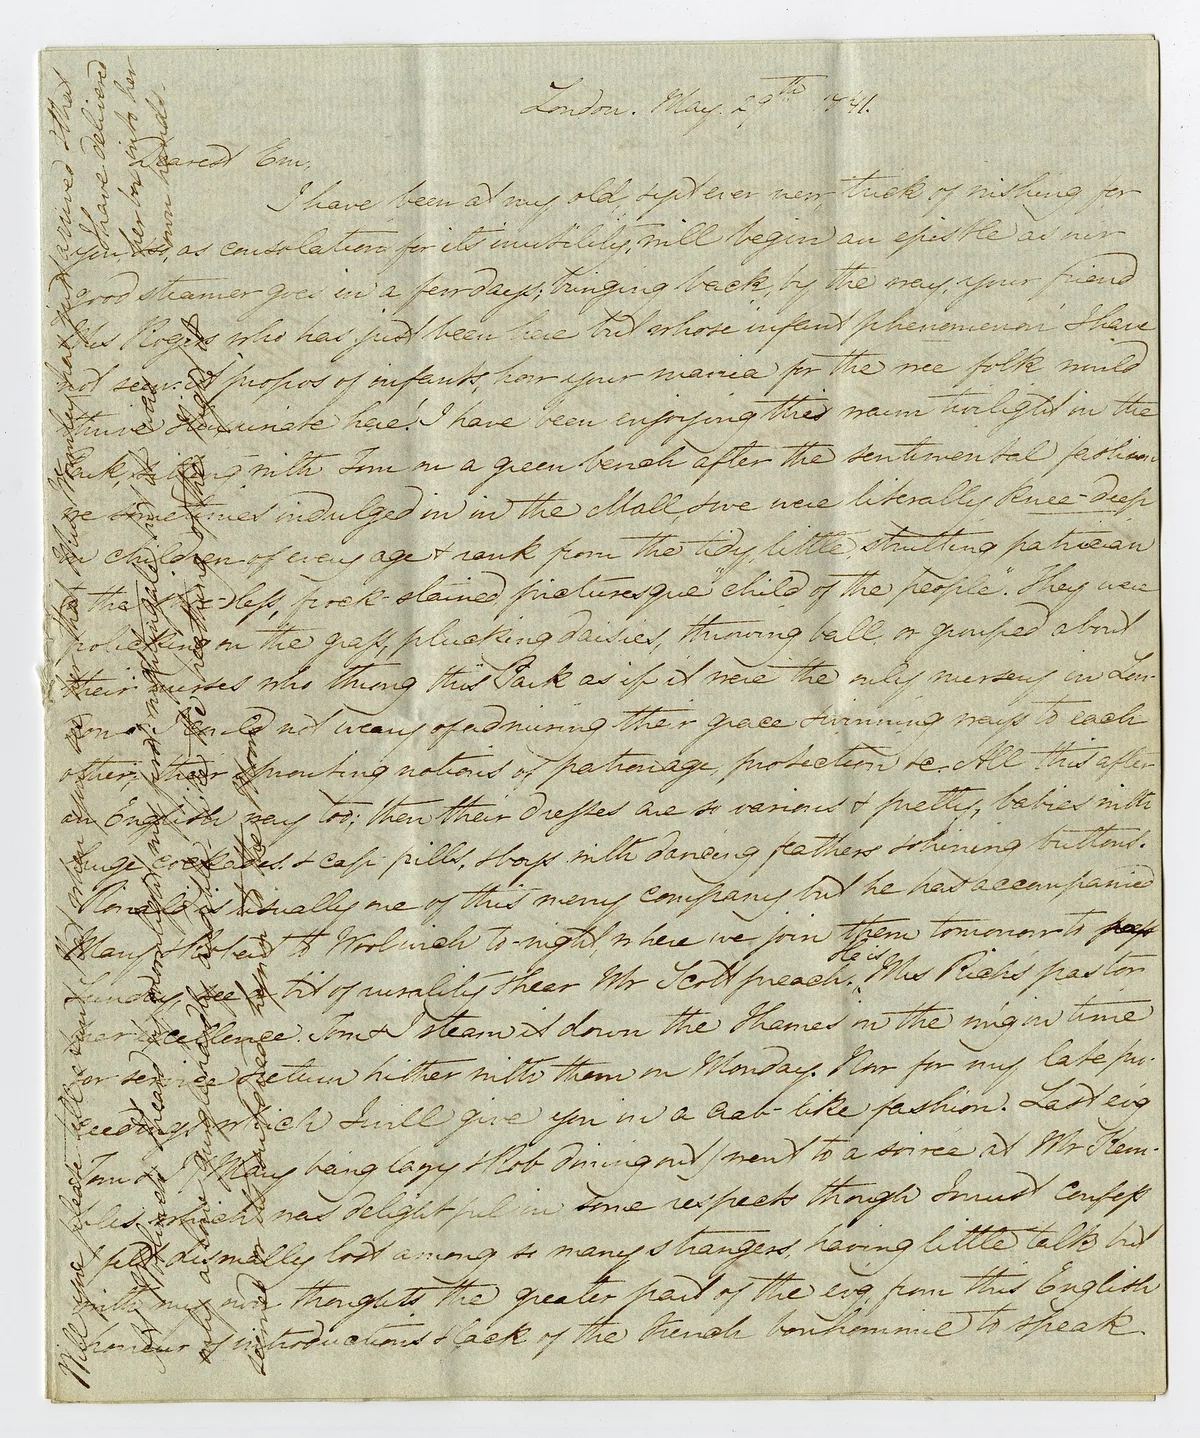 London. May. 29th 1841.
Dearest Em,
I have been at my old, & yet ever new, trick of wishing for
you & so, as consolation for its inutility, will begin an epistle as our
good steamer goes in a few days; bringing back, by the way, your friend
Mrs Rogers who has just been here but whose infant phenomenon I have
not seen. A propos of infants, how your mania for the wee folk would
thrive & luxuriate here! I have been enjoying this warm twilight in the
Park, sitting with Tom on a green bench after the sentimental fashion
we sometimes indulged in in the Mall, & we were literally knee-deep
in children of every age & rank from the tidy, little, strutting patrician
to the shoe-less, frock-stained, picturesque "child of the people". They were
frolicking on the grass, plucking daisies, throwing ball, or grouped about
their nurses who throng this Park as if it were the only nursery in Lon-
don & I could not weary of admiring their grace & winning ways to each
other, their sprouting notions of patronage, protection &c. All this after
an English way too; then their dresses are so various & pretty, babies with
huge cockades & cap frills, & boys with dancing feathers & shining buttons.
Ronald is usually one of this merry company but he has accompanied
Mary & Robert to Woolwich to-night, where we join them tomorrow to pass
Sunday, see a bit of rurality & hear Mr Scott preach. He is Mrs Rich's pastor
par excellence. Tom & I steam it down the Thames in the m'g in time
for service & return hither with them on Monday. Now for my late pro-
ceedings which I will give you in a crab-like fashion. Last ev'g
Tom & I (Mary being lazy & Rob dining out) went to a soirée at Mr Kem-
bles, which was delightful in some respects though I must confess
I felt dismally lost among so many strangers, having little talk but
with my own thoughts the greater part of the ev'g from this English
horreur of introductions & lack of the french bonhommie to speak.
Will you please tell Aunt Mary when you see her that Mrs Bromley has just arrived & that
I have delivered
her box into her
own hands.